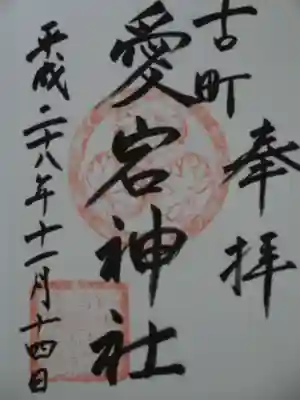 奉拝
古町
愛宕神社
平成二十八年十一月十四日